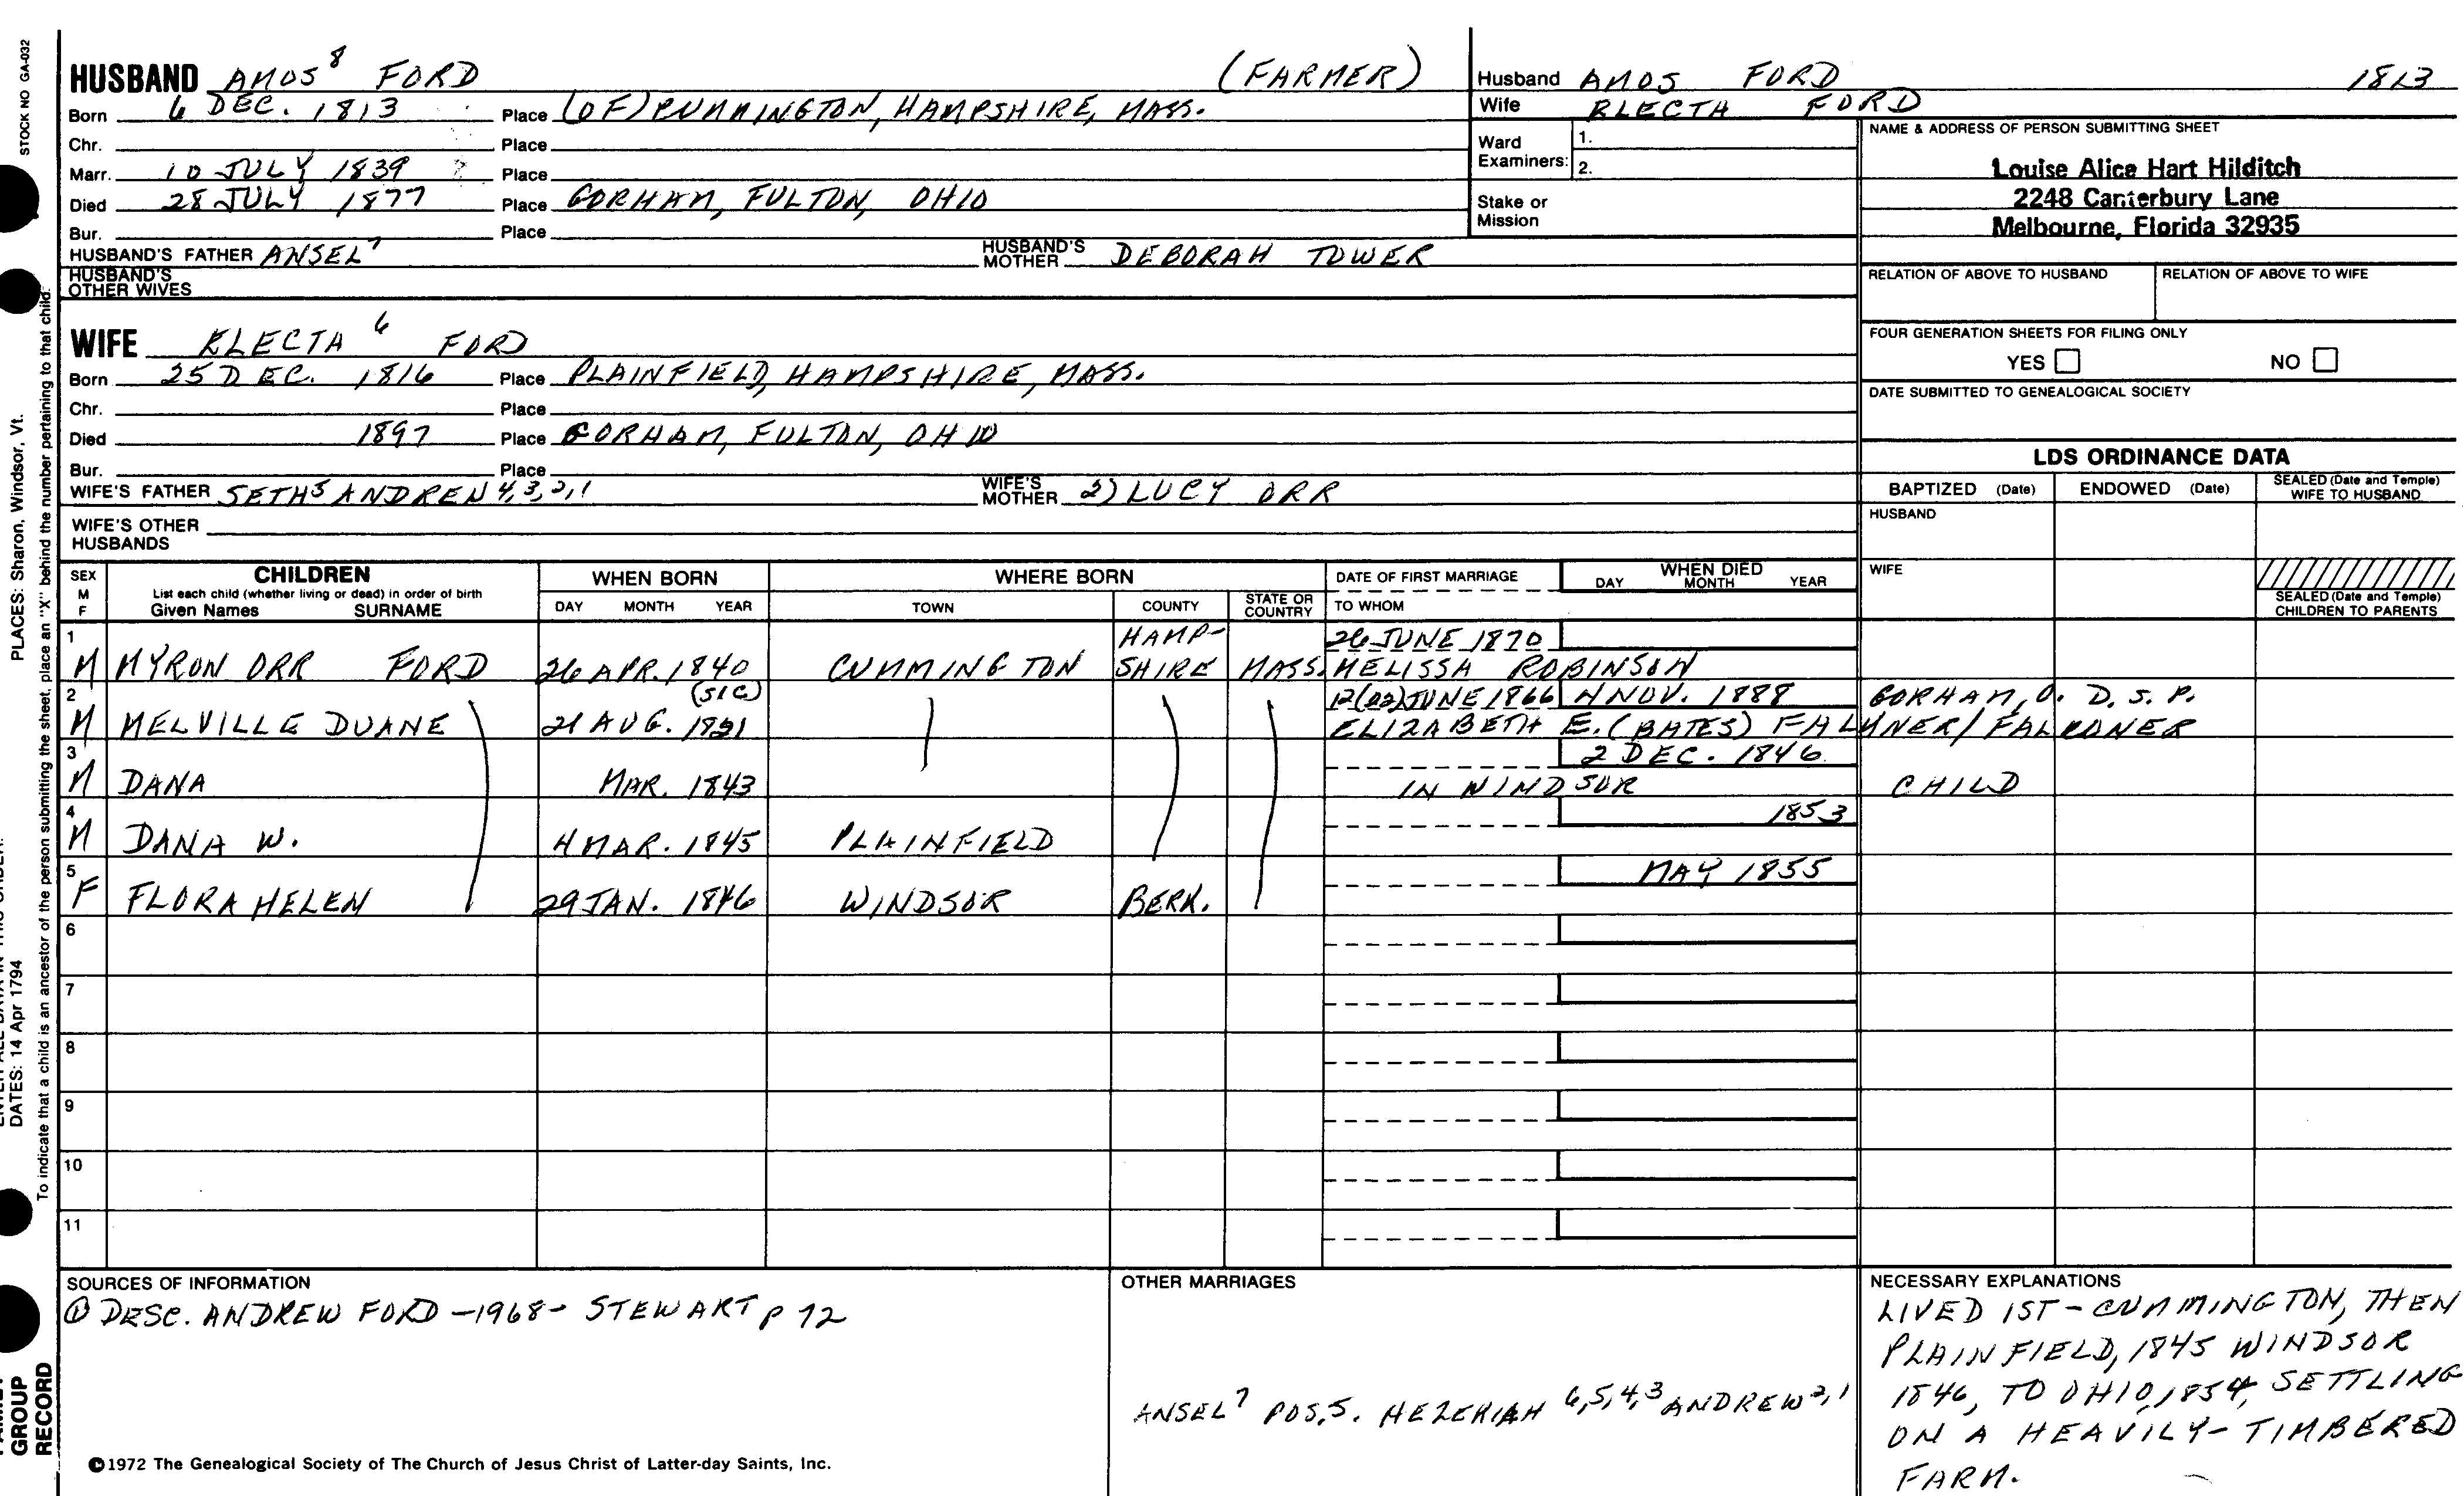 STOCK NO GA-032
HUSBAND AMOS⁸ FORD (FARMER)
Born 6 DEC. 1813 Place (OF) CUMMINGTON, HAMPSHIRE, MASS.
Chr. Place
Marr. 10 JULY 1839 Place
Died 28 JULY 1877 Place GORHAM, FULTON, OHIO
Bur. Place
HUSBAND'S FATHER ANSEL⁷ HUSBAND'S MOTHER DEBORAH TOWER
HUSBAND'S OTHER WIVES
WIFE ELECTA⁶ FORD
Born 25 DEC. 1816 Place PLAINFIELD, HAMPSHIRE, MASS.
Chr. Place
Died 1897 Place GORHAM, FULTON, OHIO
Bur. Place
WIFE'S FATHER SETH⁵ ANDREW 4,3,2,1 WIFE'S MOTHER 2) LUCY ORR
WIFE'S OTHER HUSBANDS
Husband AMOS FORD 1813
Wife ELECTA FORD
Ward Examiners: 1.
2.
Stake or Mission
NAME & ADDRESS OF PERSON SUBMITTING SHEET
Louise Alice Hart Hilditch
2248 Canterbury Lane
Melbourne, Florida 32935
RELATION OF ABOVE TO HUSBAND RELATION OF ABOVE TO WIFE
FOUR GENERATION SHEETS FOR FILING ONLY
YES NO
DATE SUBMITTED TO GENEALOGICAL SOCIETY
LDS ORDINANCE DATA
BAPTIZED (Date) ENDOWED (Date) SEALED (Date and Temple) WIFE TO HUSBAND
HUSBAND
WIFE
SEALED (Date and Temple) CHILDREN TO PARENTS
SEX M F CHILDREN WHEN BORN WHERE BORN DATE OF FIRST MARRIAGE WHEN DIED
List each child (whether living or dead) in order of birth
Given Names SURNAME DAY MONTH YEAR TOWN COUNTY STATE OR COUNTRY TO WHOM DAY MONTH YEAR
1 HAMP- 26 JUNE 1870
M MYRON ORR FORD 26 APR. 1840 CUMMINGTON SHIRE MASS. MELISSA ROBINSON
2 (SIC) 12(22) JUNE 1866 4 NOV. 1888 GORHAM, O. D.S.P.
M MELVILLE DUANE 21 AUG. ELIZABETH E. (BATES) FALKNER/FALKONER
3 2 DEC. 1846
M DANA MAR. 1843 IN WINDSOR CHILD
4 1853
M DANA W. 4 MAR. 1845 PLAINFIELD
5 MAY 1855
F FLORA HELEN 29 JAN. 1846 WINDSOR BERK.
6
7
8
9
10
11
SOURCES OF INFORMATION
① DESC. ANDREW FORD -1968- STEWART p 72
OTHER MARRIAGES
ANSEL⁷ POS.S. HEZEKIAH 6,5,4,3 ANDREW 2,1
NECESSARY EXPLANATIONS
LIVED 1ST - CUMMINGTON, THEN
PLAINFIELD, 1845 WINDSOR
1846, TO OHIO, 1854, SETTLING
ON A HEAVILY-TIMBERED
FARM.
©1972 The Genealogical Society of The Church of Jesus Christ of Latter-day Saints, Inc.
PLACES: Sharon, Windsor, Vt.
DATES: 14 Apr 1794
To indicate that a child is an ancestor of the person submitting the sheet, place an "X" behind the number pertaining to that child.
GROUP
RECORD